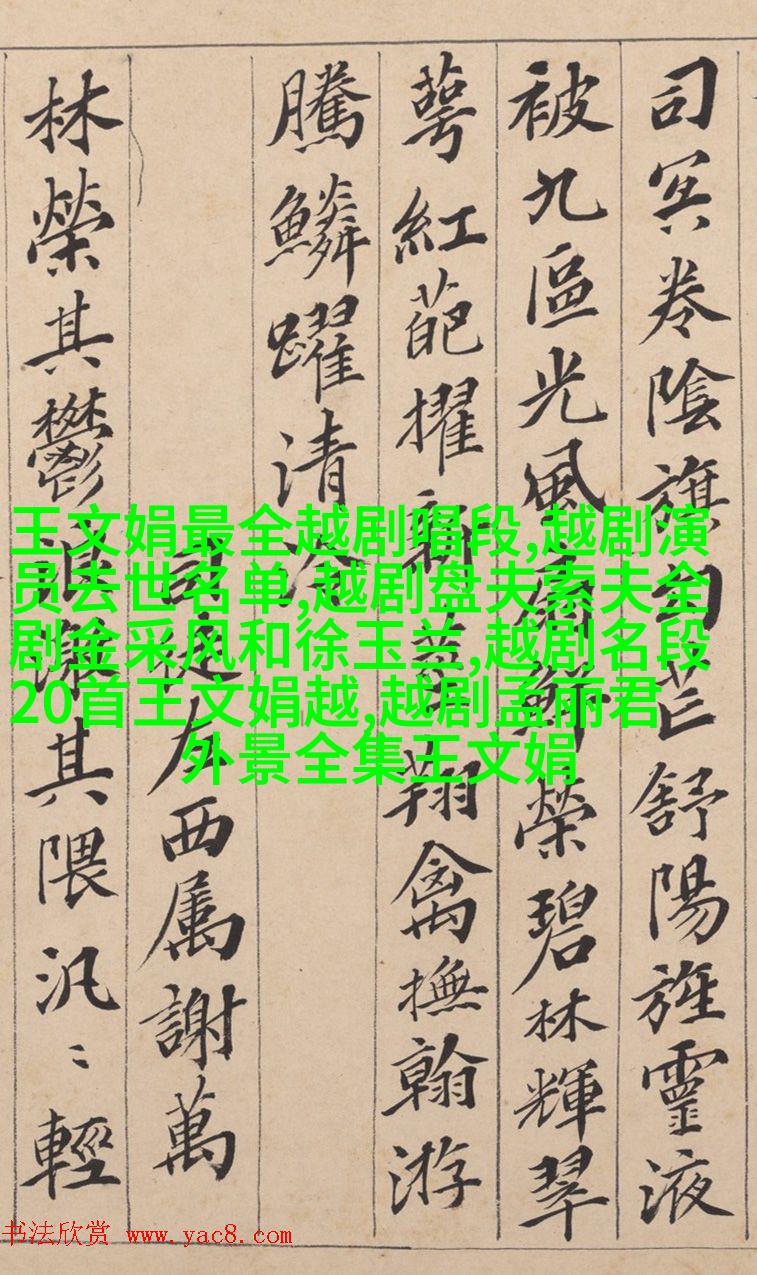 司冥卷陰旗句芒舒陽旌靈液
被九區光風扇鮮榮碧林輝翠
萼紅葩擢新莖翔禽撫翰游
騰鱗躍清泠
司徒左西属謝萬
林榮其鬱浪激其隈汎〻輕
王文娟最全越剧唱段,越剧演
员去世名单,越剧盘夫索夫全
剧金采风和徐玉兰,越剧名段
20首王文娟越,越剧孟丽君
外景全集王文娟
书法欣赏 www.yac8.com